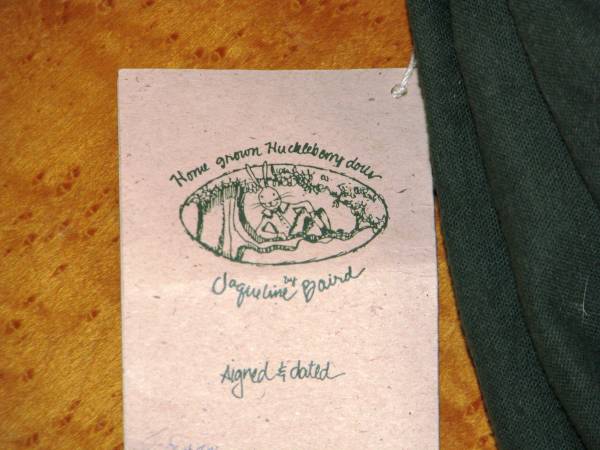 Home grown Huckleberry dolls
by
Jaqueline Baird
signed & dated